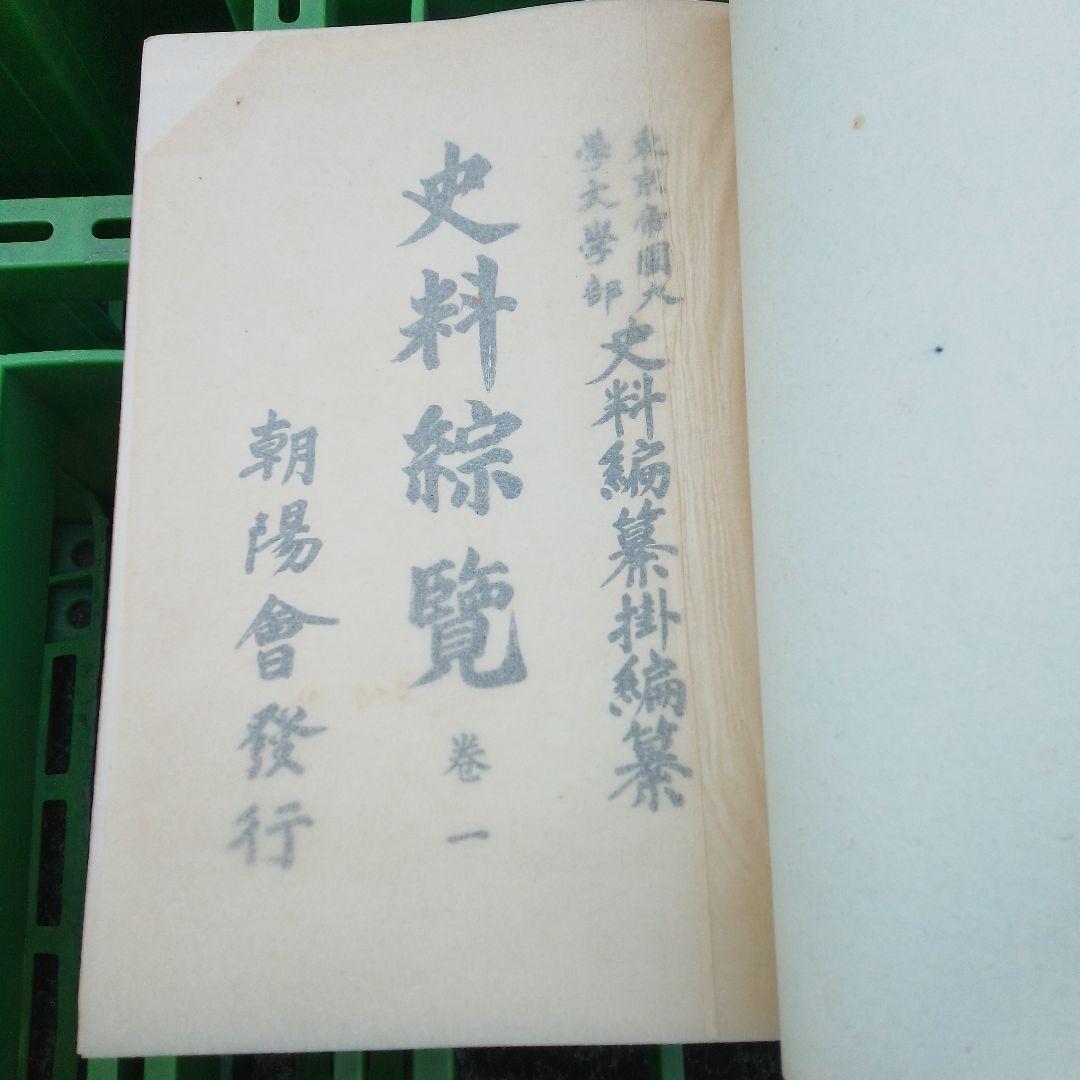 東京帝國大
學文學部
史料編纂掛編纂
史料綜覽 卷一
朝陽會發行